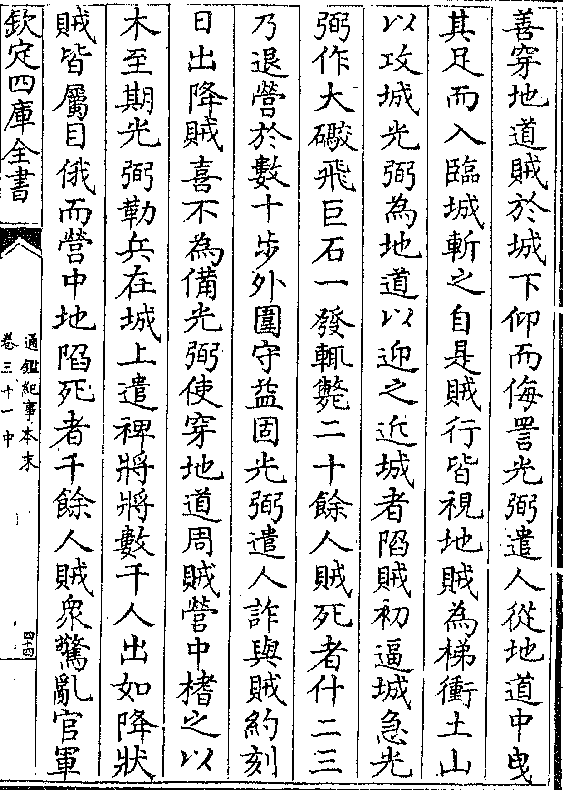 善穿地道賊於城下仰而侮詈光弼遣人從地道中曵
其足而入臨城斬之自是賊行皆視地賊為梯衝土山
以攻城光弼為地道以迎之近城者陷賊初逼城急光
弼作大礮飛巨石一發輒斃二十餘人賊死者什二三
乃退營於數十步外圍守益固光弼遣人詐與賊約刻
日出降賊喜不為備光弼使穿地道周賊營中㮷之以
木至期光弼勒兵在城上遣裨將將數千人出如降狀
賊皆屬目俄而營中地陷死者千餘人賊衆驚亂官軍
欽定四庫全書
通鑑紀事本末
卷三十一中
四十四